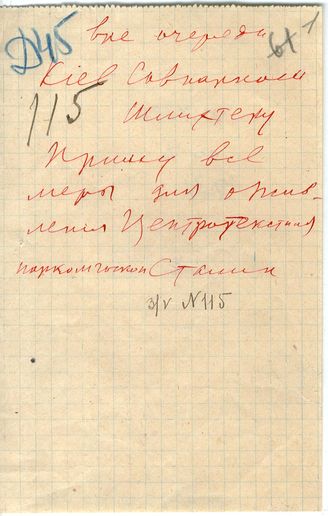 Д45
вне очереди
6х1
Кіев Совнарком
115
Шлихтеру
Приму все
меры для ожив-
ления Центротекстиля
наркомгоскон Сталин
3/V N 115